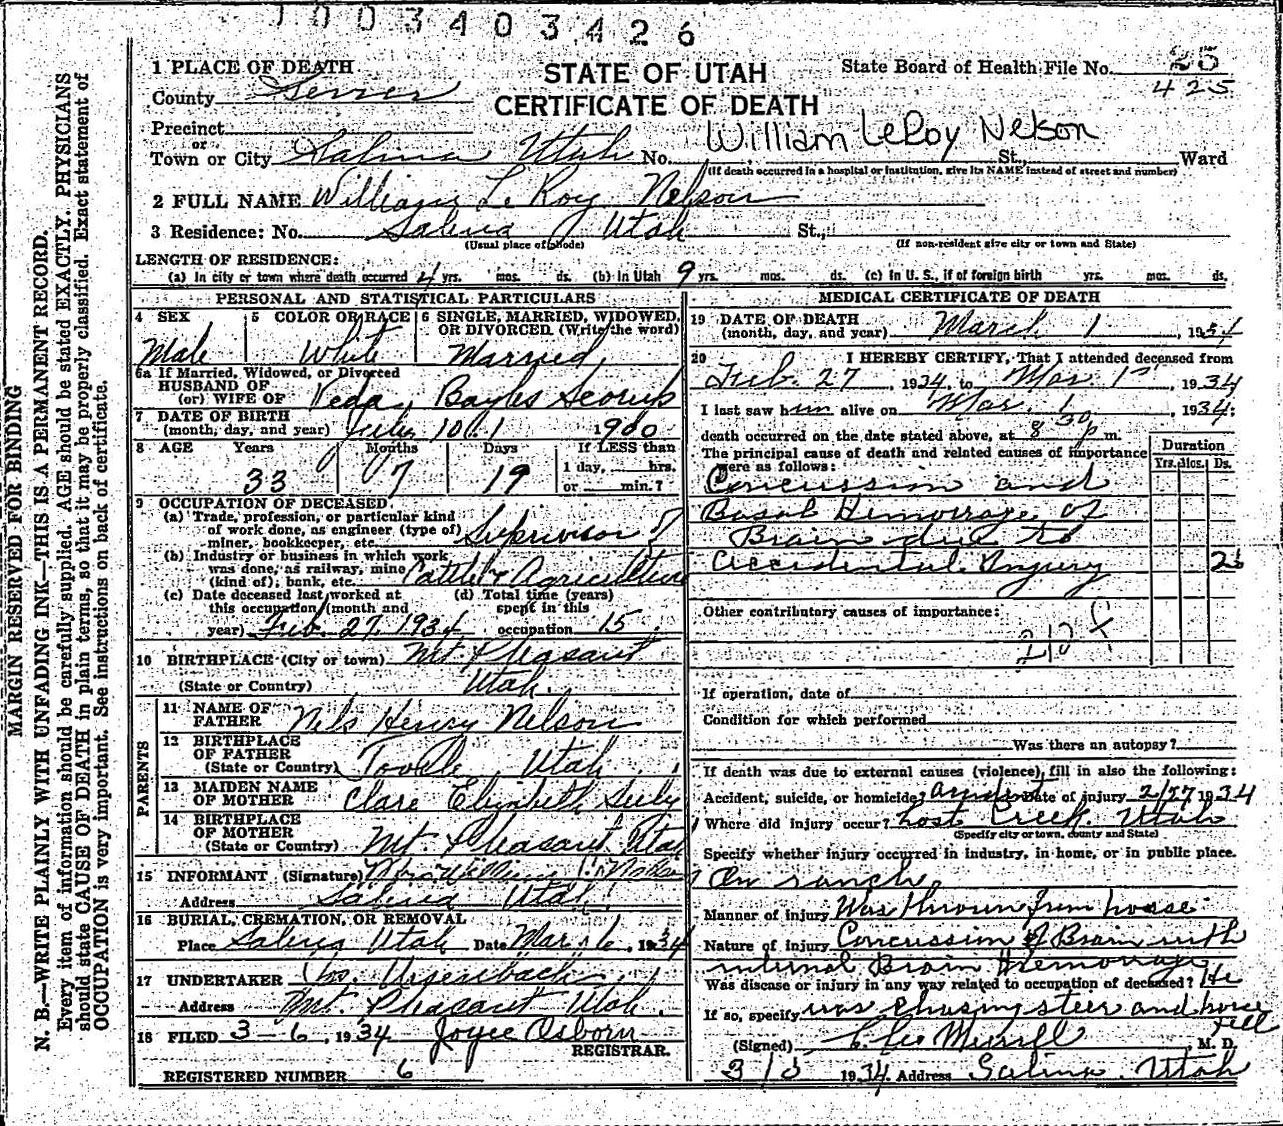 1003403426
STATE OF UTAH
CERTIFICATE OF DEATH
State Board of Health File No. 25
425
1 PLACE OF DEATH
County Sevier
Precinct
or
Town or City Salina Utah No. St., Ward
William LeRoy Nelson
(If death occurred in a hospital or institution, give its NAME instead of street and number)
2 FULL NAME William Le Roy Nelson
3 Residence: No. Salina Utah St.,
(Usual place of abode) (If non-resident give city or town and State)
LENGTH OF RESIDENCE:
(a) In city or town where death occurred 4 yrs. mos. ds. (b) In Utah 9 yrs. mos. ds. (c) In U. S., if of foreign birth yrs. mos. ds.
PERSONAL AND STATISTICAL PARTICULARS
4 SEX Male
5 COLOR OR RACE White
6 SINGLE, MARRIED, WIDOWED, OR DIVORCED (Write the word) Married
6a If Married, Widowed, or Divorced
HUSBAND OF
(or) WIFE OF Veda Bayles Scorup
7 DATE OF BIRTH
(month, day, and year) July 10 1900
8 AGE Years Months Days If LESS than
33 7 19 1 day, hrs.
or min.?
9 OCCUPATION OF DECEASED
(a) Trade, profession, or particular kind
of work done, as engineer (type of)
miner, bookkeeper, etc. Supervisor of
(b) Industry or business in which work
was done, as railway, mine
(kind of); bank, etc. Cattle & Agriculture
(c) Date deceased last worked at
this occupation (month and
year) Feb. 27, 1934
(d) Total time (years)
spent in this
occupation 15
10 BIRTHPLACE (City or town) Mt Pleasant
(State or Country) Utah.
PARENTS
11 NAME OF
FATHER Nels Henry Nelson
12 BIRTHPLACE
OF FATHER
(State or Country) Tooele Utah
13 MAIDEN NAME
OF MOTHER Clare Elizabeth Seely
14 BIRTHPLACE
OF MOTHER
(State or Country) Mt. Pleasant Utah
15 INFORMANT (Signature) Mrs William Nelson
Address Salina Utah
16 BURIAL, CREMATION, OR REMOVAL
Place Salina Utah Date Mar 6, 1934
17 UNDERTAKER Ursenbach
Address Mt. Pleasant Utah.
18 FILED 3-6, 1934 Joyce Osborn
REGISTRAR.
REGISTERED NUMBER 6
MEDICAL CERTIFICATE OF DEATH
19 DATE OF DEATH
(month, day, and year) March 1, 1934
20 I HEREBY CERTIFY, That I attended deceased from
Feb. 27, 1934, to Mar. 1st, 1934
I last saw him alive on Mar. 1, 1934;
death occurred on the date stated above, at 8 30 p m.
The principal cause of death and related causes of importance
were as follows:
Duration
Yrs. Mos. Ds.
Concussion and
Basal Hemorrage of
Brain due to
accidental Injury
Other contributory causes of importance:
If operation, date of
Condition for which performed
Was there an autopsy?
If death was due to external causes (violence), fill in also the following:
Accident, suicide, or homicide? Accident Date of injury 2/27 1934
Where did injury occur? Lost Creek, Utah
(Specify city or town, county and State)
Specify whether injury occurred in industry, in home, or in public place.
On ranch
Manner of injury Was thrown from horse
Nature of Injury Concussion of Brain with
internal Brain Hemorrage
Was disease or injury in any way related to occupation of deceased? He
If so, specify was chasing steer and horse
fell
(Signed) Merrill, M. D.
1934 Address Salina Utah
MARGIN RESERVED FOR BINDING
N. B.—WRITE PLAINLY WITH UNFADING INK—THIS IS A PERMANENT RECORD.
Every item of information should be carefully supplied. AGE should be stated EXACTLY. PHYSICIANS
should state CAUSE OF DEATH in plain terms, so that it may be properly classified. Exact statement of
OCCUPATION is very important. See instructions on back of certificate.